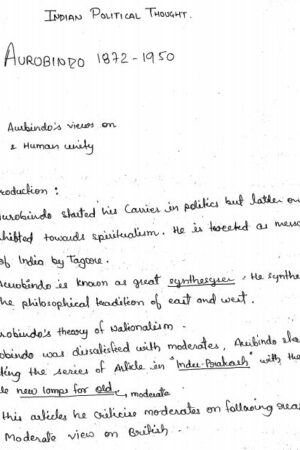 INDIAN POLITICAL THOUGHT.
AUROBINDO 1872-1950
Aurbindo's views on
& Human unity
roduction :
urobindo started his Carrier in politics but latter on
shifted towards spiritualism. He is tweeted as mess
of India by Tagore.
Aurobindo is known as great synthesyser, He synthe
the philosophical tradition of east and west.
robindo's theory of Nationalism.
obindo was dissatisfied with moderates, Aurobindo sta
ting the series of Article in "Indu-Prakash" with the
le new lamps for old, moderate
this articles he criticise moderates on following reas
Moderate view on British.